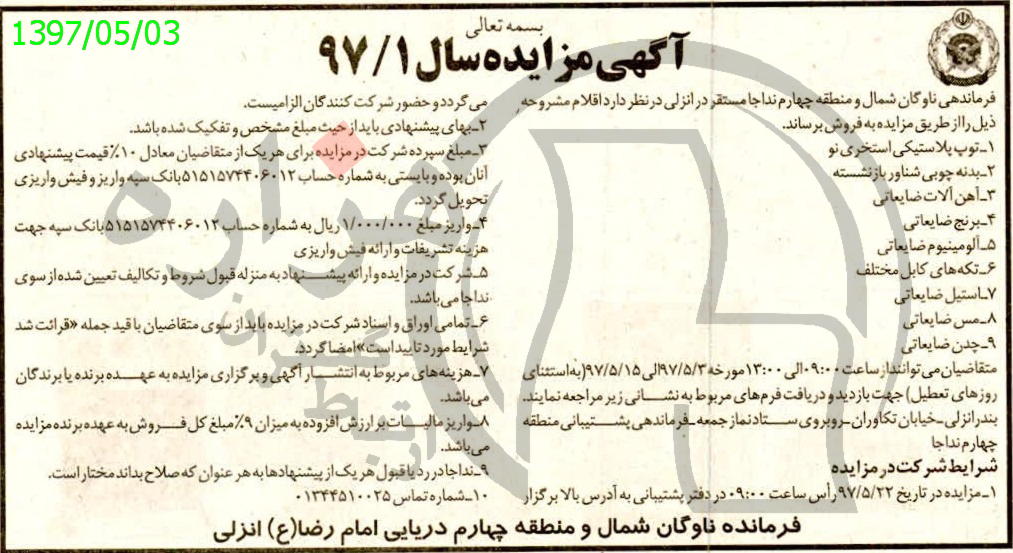 1397/05/03
بسمه تعالی
آگهی مزایده سال ۹۷/۱
فرماندهی ناوگان شمال و منطقه چهارم نداجا مستقر در انزلی در نظر دارد اقلام مشروحه
ذیل را از طریق مزایده به فروش برساند.
۱ـ توپ پلاستیکی استخری نو
۲ـ بدنه چوبی شناور بازنشسته
۳ـ آهن آلات ضایعاتی
۴ـ برنج ضایعاتی
۵ـ آلومینیوم ضایعاتی
۶ـ تکه‌های کابل مختلف
۷ـ استیل ضایعاتی
۸ـ مس ضایعاتی
۹ـ چدن ضایعاتی
متقاضیان می‌توانند از ساعت ۰۹:۰۰ الی ۱۳:۰۰ مورخه ۹۷/۵/۳ الی ۹۷/۵/۱۵ (به استثنای
روزهای تعطیل) جهت بازدید و دریافت فرم‌های مربوط به نشانی زیر مراجعه نمایند.
بندرانزلی ـ خیابان تکاوران ـ روبروی ستاد نماز جمعه ـ فرماندهی پشتیبانی منطقه
چهارم نداجا
شرایط شرکت در مزایده
۱ـ مزایده در تاریخ ۹۷/۵/۲۲ رأس ساعت ۰۹:۰۰ در دفتر پشتیبانی به آدرس بالا برگزار
می گردد و حضور شرکت کنندگان الزامیست.
۲ـ بهای پیشنهادی باید از حیث مبلغ مشخص و تفکیک شده باشد.
۳ـ مبلغ سپرده شرکت در مزایده برای هر یک از متقاضیان معادل ۱۰٪ قیمت پیشنهادی
آنان بوده و بایستی به شماره حساب ۵۱۵۱۵۷۴۴۰۶۰۱۲ بانک سپه واریز و فیش واریزی
تحویل گردد.
۴ـ واریز مبلغ ۱/۰۰۰/۰۰۰ ریال به شماره حساب ۵۱۵۱۵۷۴۴۰۶۰۱۲ بانک سپه جهت
هزینه تشریفات و ارائه فیش واریزی
۵ـ شرکت در مزایده و ارائه پیشنهاد به منزله قبول شروط و تکالیف تعیین شده از سوی
نداجا می‌باشد.
۶ـ تمامی اوراق و اسناد شرکت در مزایده باید از سوی متقاضیان با قید جمله «قرائت شد
شرایط مورد تایید است» امضا گردد.
۷ـ هزینه‌های مربوط به انتشار آگهی و برگزاری مزایده به عهده برنده یا برندگان
می باشد.
۸ـ واریز مالیات بر ارزش افزوده به میزان ۹٪ مبلغ کل فروش به عهده برنده مزایده
می‌باشد.
۹ـ نداجا در رد یا قبول هر یک از پیشنهادها به هر عنوان که صلاح بداند مختار است.
۱۰ـ شماره تماس ۰۱۳۴۴۵۱۰۰۲۵
فرمانده ناوگان شمال و منطقه چهارم دریایی امام رضا(ع) انزلی
هزاره
ارتباط گستران